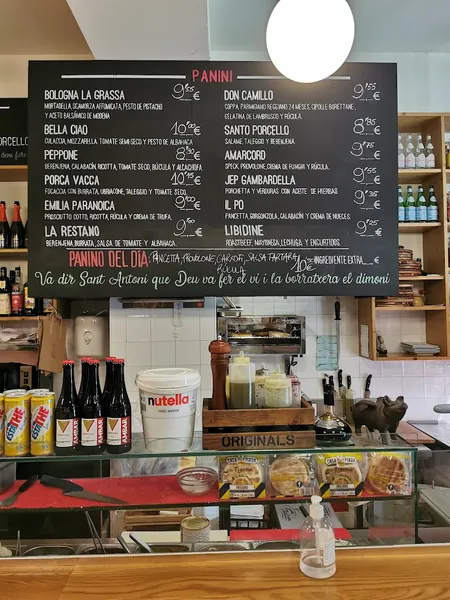 PANINI
BOLOGNA LA GRASSA
MORTADELLA, SCAMORZA AFFUMICATA, PESTO DE PISTACHO
Y ACETO BALSÁMICO DE MODENA
BELLA CIAO
CULACCIA, MOZZARELLA, TOMATE SEMI SECO Y PESTO DE ALBAHACA
PEPPONE
BERENJENA, CALABACÍN, RICOTTA, TOMATE SECO, RÚCULA Y ALCACHOFA
PORCA VACCA 10'95€
FOCACCIA CON BURRATA, UBRIACONE, TALEGGIO Y TOMATE SECO
EMILIA PARANOICA
PROSCIUTTO COTTO, RICOTTA, RÚCULA Y CREMA DE TRUFA
LA RESTANO
BERENJENA, BURRATA, SALSA DE TOMATE Y ALBAHACA
DON CAMILLO 9'55€
COPPA, PARMIGIANO REGGIANO 24 MESES, CIPOLLE BORETTANE,
GELATINA DE LAMBRUSCO Y RÚCULA
SANTO PORCELLO 8'95€
SALAME, TALEGGIO Y BERENJENA
AMARCORD
SPECK, PROVOLONE, CREMA DE FUNGHI Y RÚCULA
JEP GAMBARDELLA
PORCHETTA Y VERDURAS CON ACEITE DE HIERBAS
IL PO
PANCETTA, GORGONZOLA, CALABACÍN Y CREMA DE NUECES
LIBIDINE 9'25€
ROASTBEEF, MAYONESA, LECHUGA Y ENCURTIDOS
PANINO DEL DÍA: PANCETTA, PROVOLONE, CARCIOF, SALSA TARTARA
RÚCULA 10€
INGREDIENTE EXTRA
Va dir Sant Antoni que Deu va fer el vi i la borratxera el dimoni
ORCELLO
nutella
ORIGINALS
ESTATHÉ
AMBAR
AMBAR
AMBAR
CASA DEL PIADA